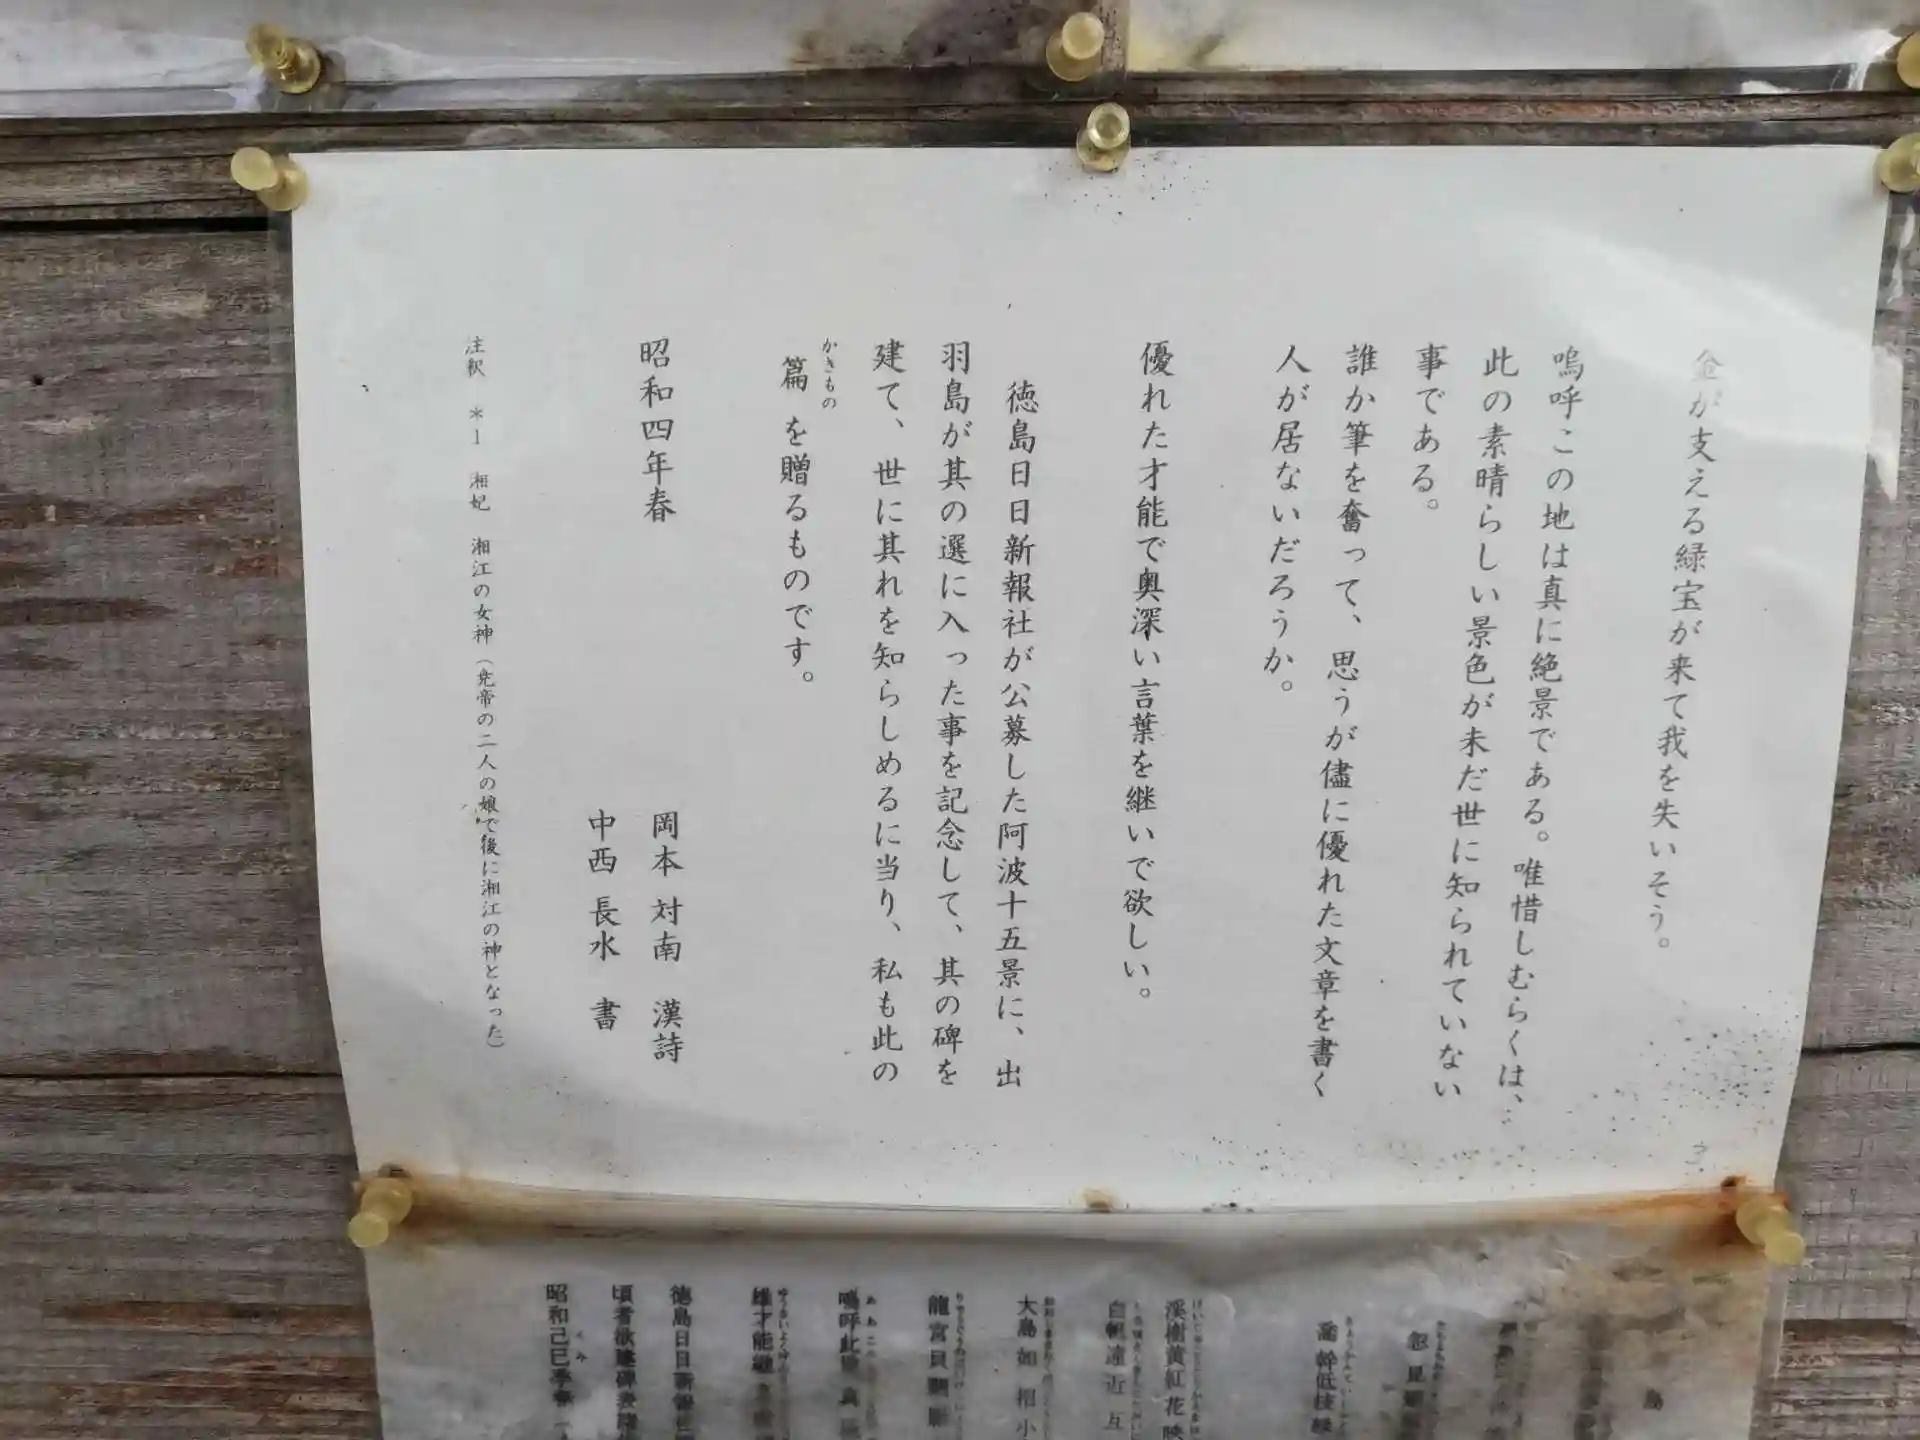 金が支える緑宝が来て我を失いそう。
嗚呼この地は真に絶景である。唯惜しむらくは、
此の素晴らしい景色が未だ世に知られていない
事である。
誰か筆を奮って、思うが儘に優れた文章を書く
人が居ないだろうか。
優れた才能で奥深い言葉を継いで欲しい。
徳島日日新報社が公募した阿波十五景に、出
羽島が其の選に入った事を記念して、其の碑を
建て、世に其れを知らしめるに当り、私も此の
篇を贈るものです。
かきもの
昭和四年春
岡本 対南 漢詩
中西 長水 書
注釈 *1 湘妃 湘江の女神(尭帝の二人の娘で後に湘江の神となった)
島
渓樹黄紅花映
白帆遠近互
大島如相小
龍宮貝闕
嗚呼此
雄才能継
徳島日日新報社
頃者欲建碑表
昭和己巳季春